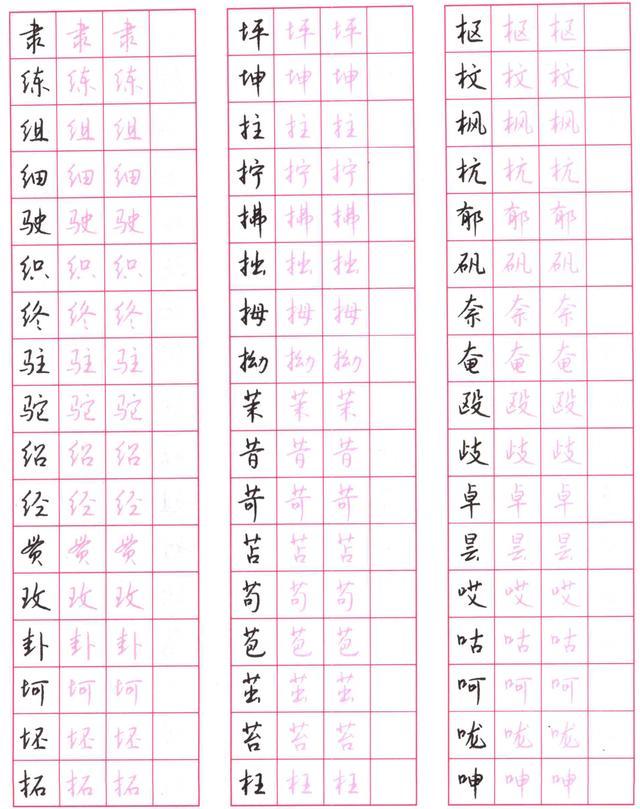 隶 隶 隶
练 练 练
组 组 组
细 细 细
驶 驶 驶
织 织 织
终 终 终
驻 驻 驻
驼 驼 驼
绍 绍 绍
经 经 经
贯 贯 贯
玫 玫 玫
卦 卦 卦
坷 坷 坷
坯 坯 坯
拓 拓 拓
坪 坪 坪
坤 坤 坤
拄 拄 拄
拧 拧 拧
拂 拂 拂
拙 拙 拙
拇 拇 拇
拗 拗 拗
茉 茉 茉
昔 昔 昔
苛 苛 苛
苫 苫 苫
苟 苟 苟
苞 苞 苞
茁 茁 茁
苔 苔 苔
枉 枉 枉
枢 枢 枢
枚 枚 枚
枫 枫 枫
杭 杭 杭
郁 郁 郁
矾 矾 矾
奈 奈 奈
奄 奄 奄
殴 殴 殴
歧 歧 歧
卓 卓 卓
昙 昙 昙
哎 哎 哎
咕 咕 咕
呵 呵 呵
咙 咙 咙
呻 呻 呻